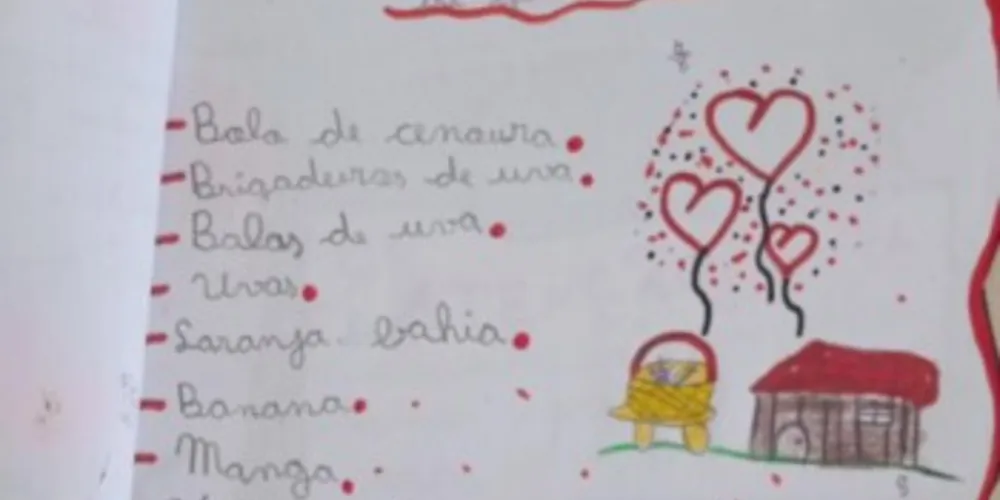 - Bala de cenoura.
- Brigadeiros de uva.
- Balas de uva.
- Uvas.
- Laranja bahia.
- Banana.
- Manga.